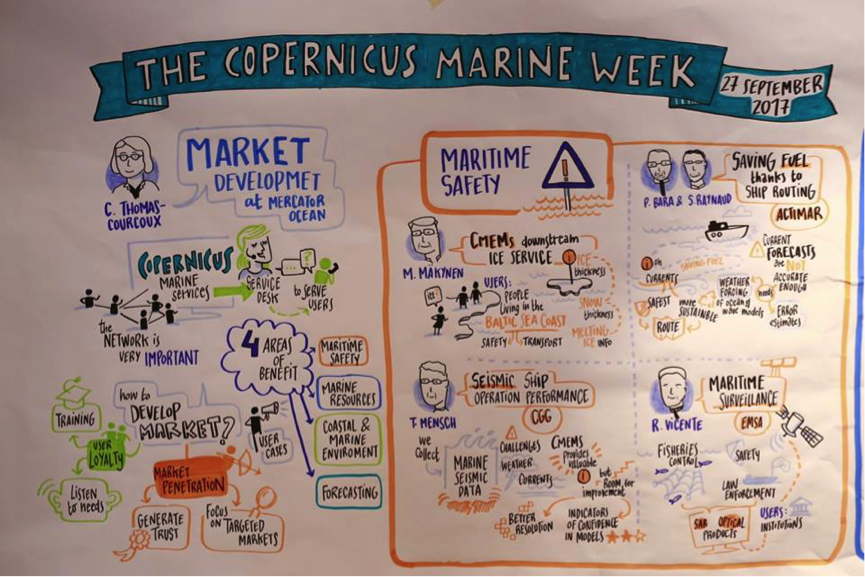 THE COPERNICUS MARINE WEEK
27 SEPTEMBER
2017
C. THOMAS-
COURCOUX
MARKET
DEVELOPMET
at MERCATOR
OCEAN
COPERNICUS
MARINE
SERVICES
SERVICE
DESK
to SERVE
USERS
the
NETWORK is
VERY IMPORTANT
4 AREAS
OF
BENEFIT
MARITIME
SAFETY
MARINE
RESOURCES
COASTAL &
MARINE
ENVIROMENT
FORECASTING
how to
DEVELOP
MARKET?
USER
CASES
TRAINING
USER
LOYALTY
Listen
to needs
MARKET
PENETRATION
GENERATE
TRUST
FOCUS
ON TARGETED
MARKETS
MARITIME
SAFETY
M. MAKYNEN
CMEMs downstream
ICE SERVICE
ICE
thickness
SNOW
thickness
MELTING
ICE INFO
USERS:
PEOPLE
living in the
BALTIC SEA COAST
SAFETY
TRANSPORT
P. BARA & S. RAYNAUD
SAVING FUEL
thanks to
SHIP ROUTING
ACTIMAR
i on
CURRENTS
SAVING FUEL
SAFEST
more
SUSTAINABLE
ROUTE
WEATHER
FORCING
of ocean &
wave models
needs
CURRENT
FORECASTS
are NOT
ACCURATE
ENOUGH
ERROR
estimates
T. MENSCH
SEISMIC SHIP
OPERATION PERFORMANCE
CGG
we
collect
MARINE
SEISMIC
DATA
CHALLENGES
WEATHER
CURRENTS
CMEMS
provides
valuable
i
but
ROOM for
improvement
BETTER
RESOLUTION
INDICATORS
OF CONFIDENCE
IN MODELS
R. VICENTE
MARITIME
SURVEILLANCE
EMSA
FISHERIES
CONTROL
SAFETY
LAW
ENFORCEMENT
SAR OPTICAL
PRODUCTS
USERS:
INSTITUTIONS